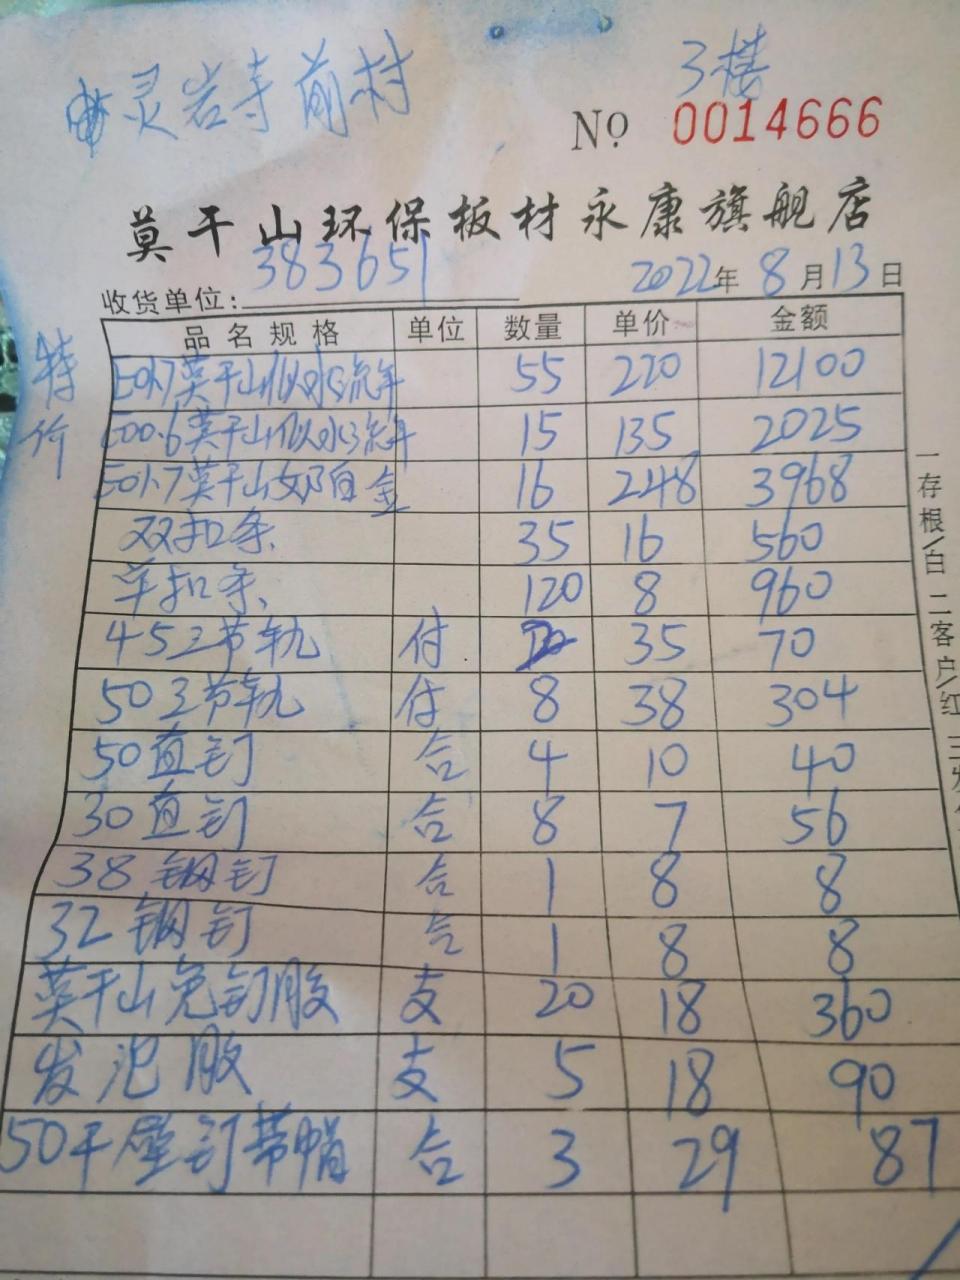 灵岩寺前村 3楼
No. 0014666
莫干山环保板材永康旗舰店
收货单位: 383651 2022年8月13日
特价
品名规格 单位 数量 单价 金额
E01.7莫干山似水流年 55 220 12100
E00.6莫干山似水流年 15 135 2025
E01.7莫干山奶白金 16 248 3968
双扣条 35 16 560
单扣条 120 8 960
45三节轨 付 35 70
50三节轨 付 8 38 304
50直钉 合 4 10 40
30直钉 合 8 7 56
38钢钉 合 1 8 8
32钢钉 合 1 8 8
莫干山免钉胶 支 20 18 360
发泡胶 支 5 18 90
50干壁钉带帽 合 3 29 87
一存根/白 二客户/红 三发